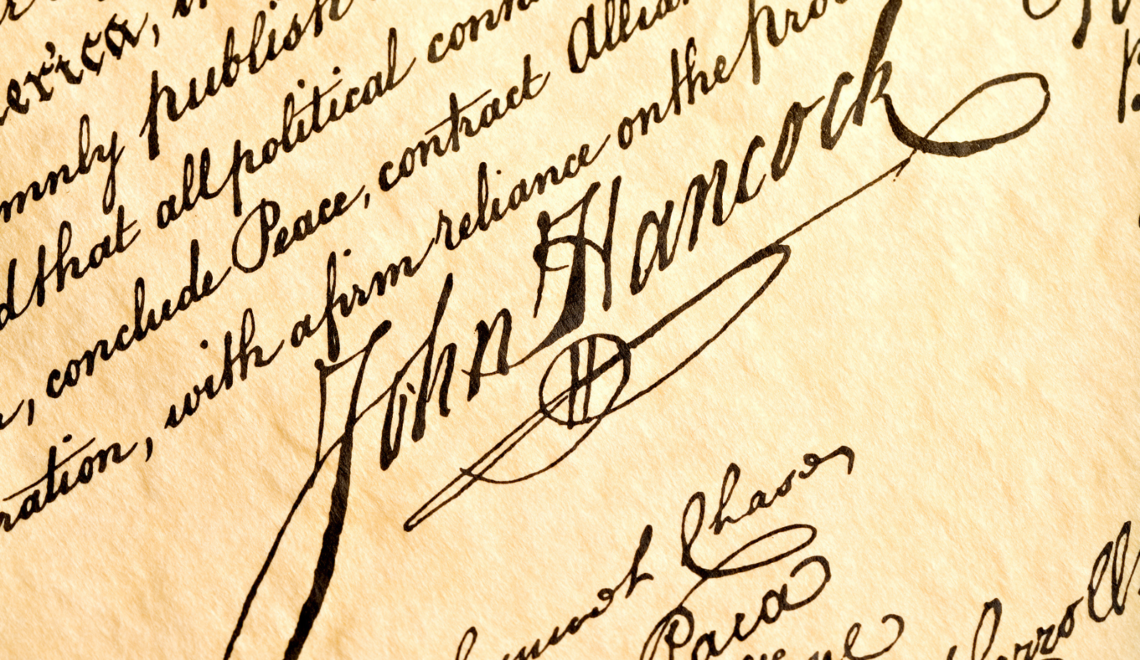 publish
mnly
that all political conn
conclude Peace, contract Allian
ration, with a firm reliance on the pro
John Hancock
Chase
Paca